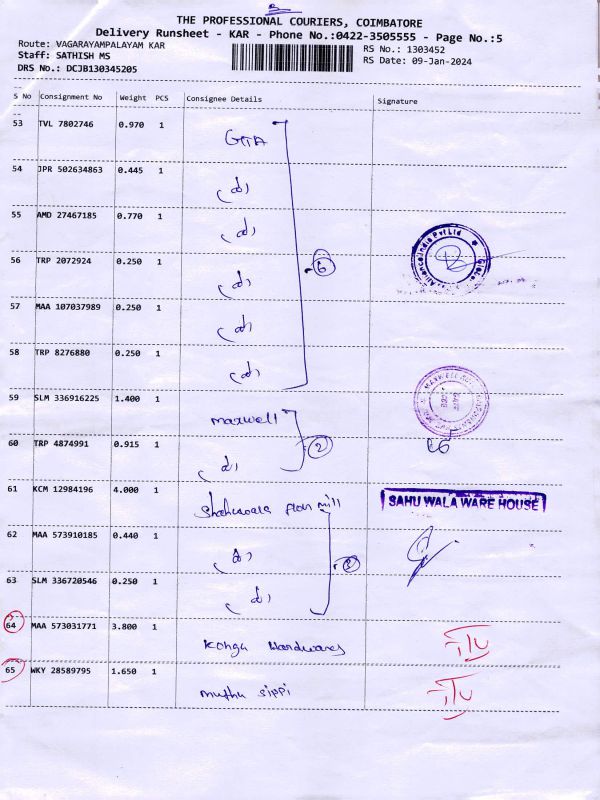 THE PROFESSIONAL COURIERS, COIMBATORE
Delivery Runsheet - KAR - Phone No.:0422-3505555 - Page No.:5
Route: VAGARAYAMPALAYAM KAR
RS No.: 1303452
Staff: SATHISH MS
RS Date: 09-Jan-2024
DRS No.: DCJB130345205
S No Consignment No Weight PCS Consignee Details Signature
53 TVL 7802746 0.970 1
54 JPR 502634863 0.445 1
55 AMD 27467185 0.770 1
56 TRP 2072924 0.250 1
6
57 MAA 107037989 0.250 1
58 TRP 8276880 0.250 1
59 SLM 336916225 1.400 1 maxwell
60 TRP 4874991 0.915 1 2
61 KCM 12984196 4.000 1 mill SAHU WALA WARE HOUSE
62 MAA 573910185 0.440 1
3
63 SLM 336720546 0.250 1
64 MAA 573031771 3.800 1 Kongu Hardwares
65 WKY 28589795 1.650 1 muthu sippi